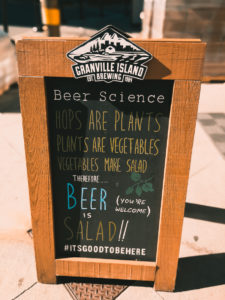 GRANVILLE ISLAND
BREWING
Beer Science
HOPS ARE PLANTS
PLANTS ARE VEGETABLES
VEGETABLES MAKE SALAD
THEREFORE...
BEER (YOU'RE
IS WELCOME)
SALAD!!
#ITSGOODTOBEHERE